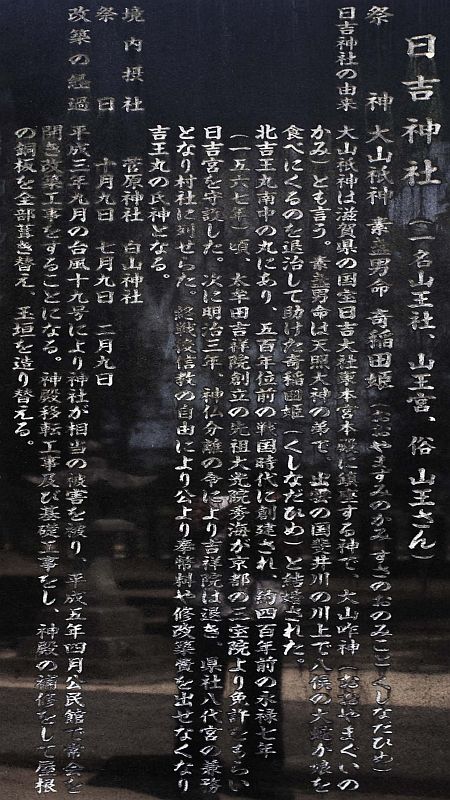 日吉神社（一名山王社、山王宮、俗 山王さん）
祭神 大山祇神 素盞男命 奇稲田姫（おおやますみのかみ すさのおのみこと くしなだひめ）
日吉神社の由来 大山祇神は滋賀県の国宝日吉大社東本宮本殿に鎮座する神で、大山咋神（おおやまぐいの
かみ）とも言う。素盞男命は天照大神の弟で、出雲の国斐井川の川上で八俣の大蛇が娘を
食べにくるのを退治して助けた奇稲田姫（くしなだひめ）と結婚された。
北吉王丸南中の丸にあり、五百年位前の戦国時代に創建され、約四百年前の永禄七年
（一五六七年）頃、太牟田吉祥院創立の先祖大光院秀海が京都の三宝院より免許をもらい
日吉宮を守護した。次に明治三年、神仏分離の令により吉祥院は退き、県社八代宮の兼務
となり村社に列せられた。終戦後信教の自由により公より奉幣料や修改築費を出せなくなり
吉王丸の氏神となる。
境内摂社 菅原神社 白山神社
祭日 十月九日 七月九日 二月九日
改築の経過 平成三年九月の台風十九号により神社が相当の被害を被り、平成五年四月公民館で常会を
開き改築工事をすることになる。神殿移転工事及び基礎工事をし、神殿の補修をして屋根
の銅板を全部葺き替え、玉垣を造り替える。